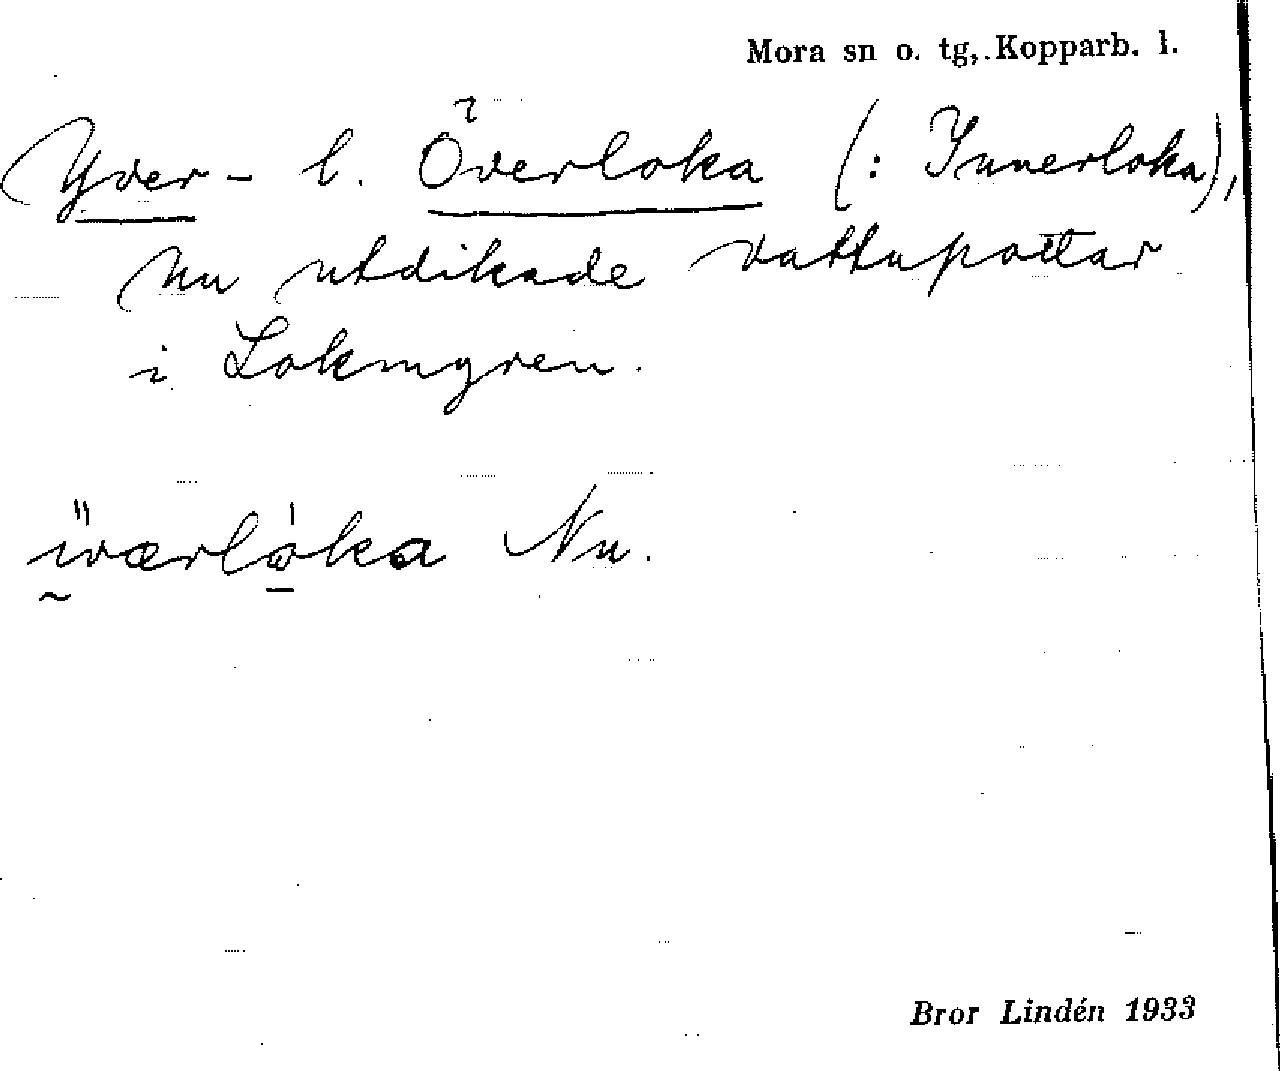 Mora sn o. tg, Kopparb. l.
Yver- l. Överloka (: Innerloka),
nu utdikade vattupottar
i Lokmyren.
iværlòka Nu.
Bror Lindén 1933